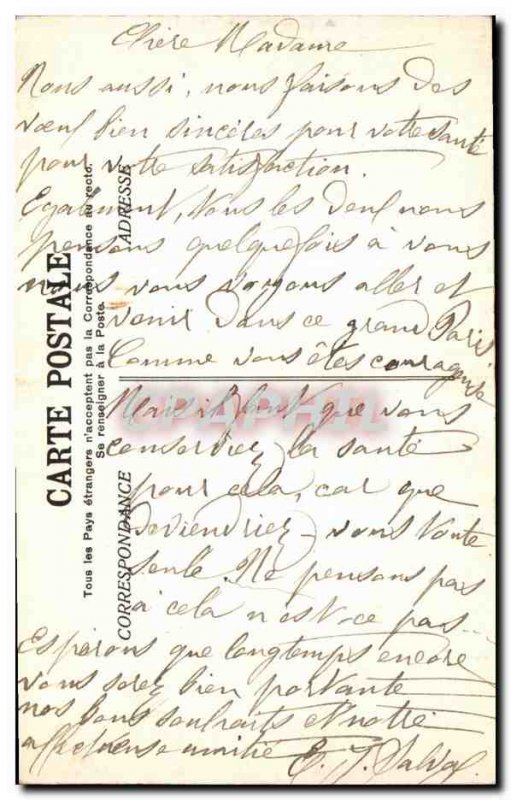 Chère Madame
Nous aussi, nous faisons des
vœux bien sincères pour votre santé
pour votre satisfaction.
Egalement, tous les deux nous
pensons quelquefois à vous
nous vous voyons aller et
venir dans ce grand Paris
Comme vous êtes courageuse
Mais il faut que vous
conserviez la santé
pour cela, car que
deviendriez-vous toute
seule. Ne pensons pas
à cela n'est-ce pas...
Espérons que longtemps encore
vous serez bien portante
nos bons souhaits et notre
affectueuse amitié E. J.
CARTE POSTALE
Tous les Pays étrangers n'acceptent pas la Correspondance au recto.
Se renseigner à la Poste.
CORRESPONDANCE
ADRESSE
CPAPHIL